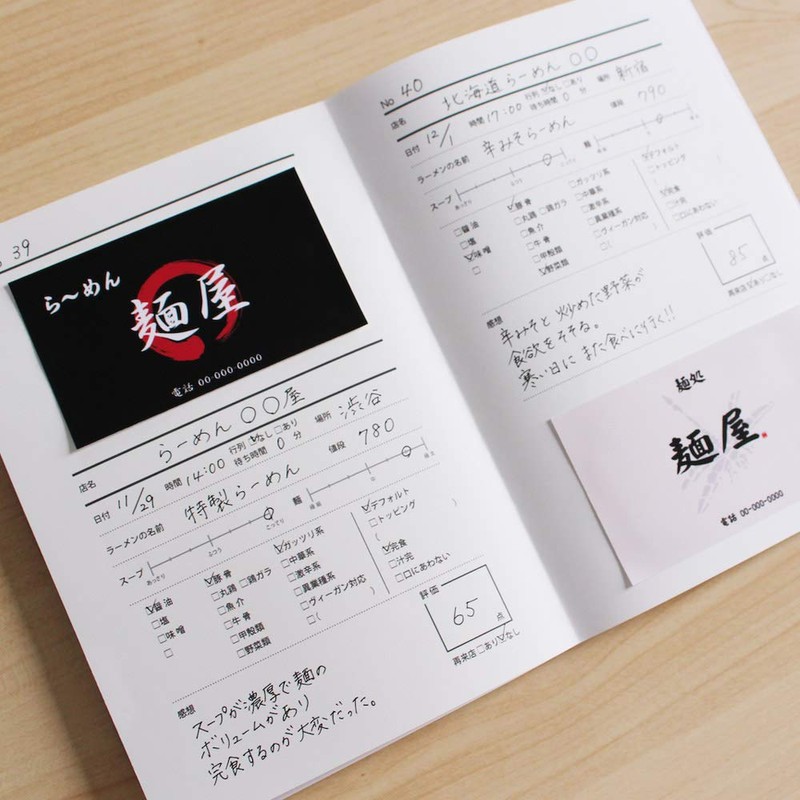 39
ら〜めん
麺屋
電話 00-000-0000
店名 らーめん 〇〇屋
日付 11/29 時間 14:00 行列 ☑なし □あり 場所 渋谷
待ち時間 0 分
ラーメンの名前 特製らーめん 値段 780
スープ 麺
あっさり ふつう こってり
☑醤油 ☑豚骨 ☑ガッツリ系 ☑デフォルト
□塩 □丸鶏 □鶏ガラ □中華系 □トッピング
□味噌 □魚介 □激辛系 ( )
□ □牛骨 □異業種系 ☑完食
□甲殻類 □ヴィーガン対応 □汁完
□野菜類 □( ) □口にあわない
評価
65 点
再来店 □あり ☑なし
感想
スープが濃厚で麺の
ボリュームがあり
完食するのが大変だった。
No 40
店名 北海道らーめん 〇〇
日付 12/1 時間 17:00 行列 ☑なし □あり 場所 新宿
待ち時間 0 分
ラーメンの名前 辛みそらーめん 値段 790
スープ 麺
あっさり ふつう こってり
□醤油 ☑豚骨 □ガッツリ系 ☑デフォルト
□塩 □丸鶏 □鶏ガラ □中華系 □トッピング
☑味噌 □魚介 □激辛系 ( )
□ □牛骨 □異業種系 ☑完食
□甲殻類 □ヴィーガン対応 □汁完
☑野菜類 □( ) □口にあわない
評価
85 点
再来店 ☑あり □なし
感想
辛みそと炒めた野菜が
食欲をそそる。
寒い日にまた食べに行く!!
麺処
麺屋
電話 00-000-0000